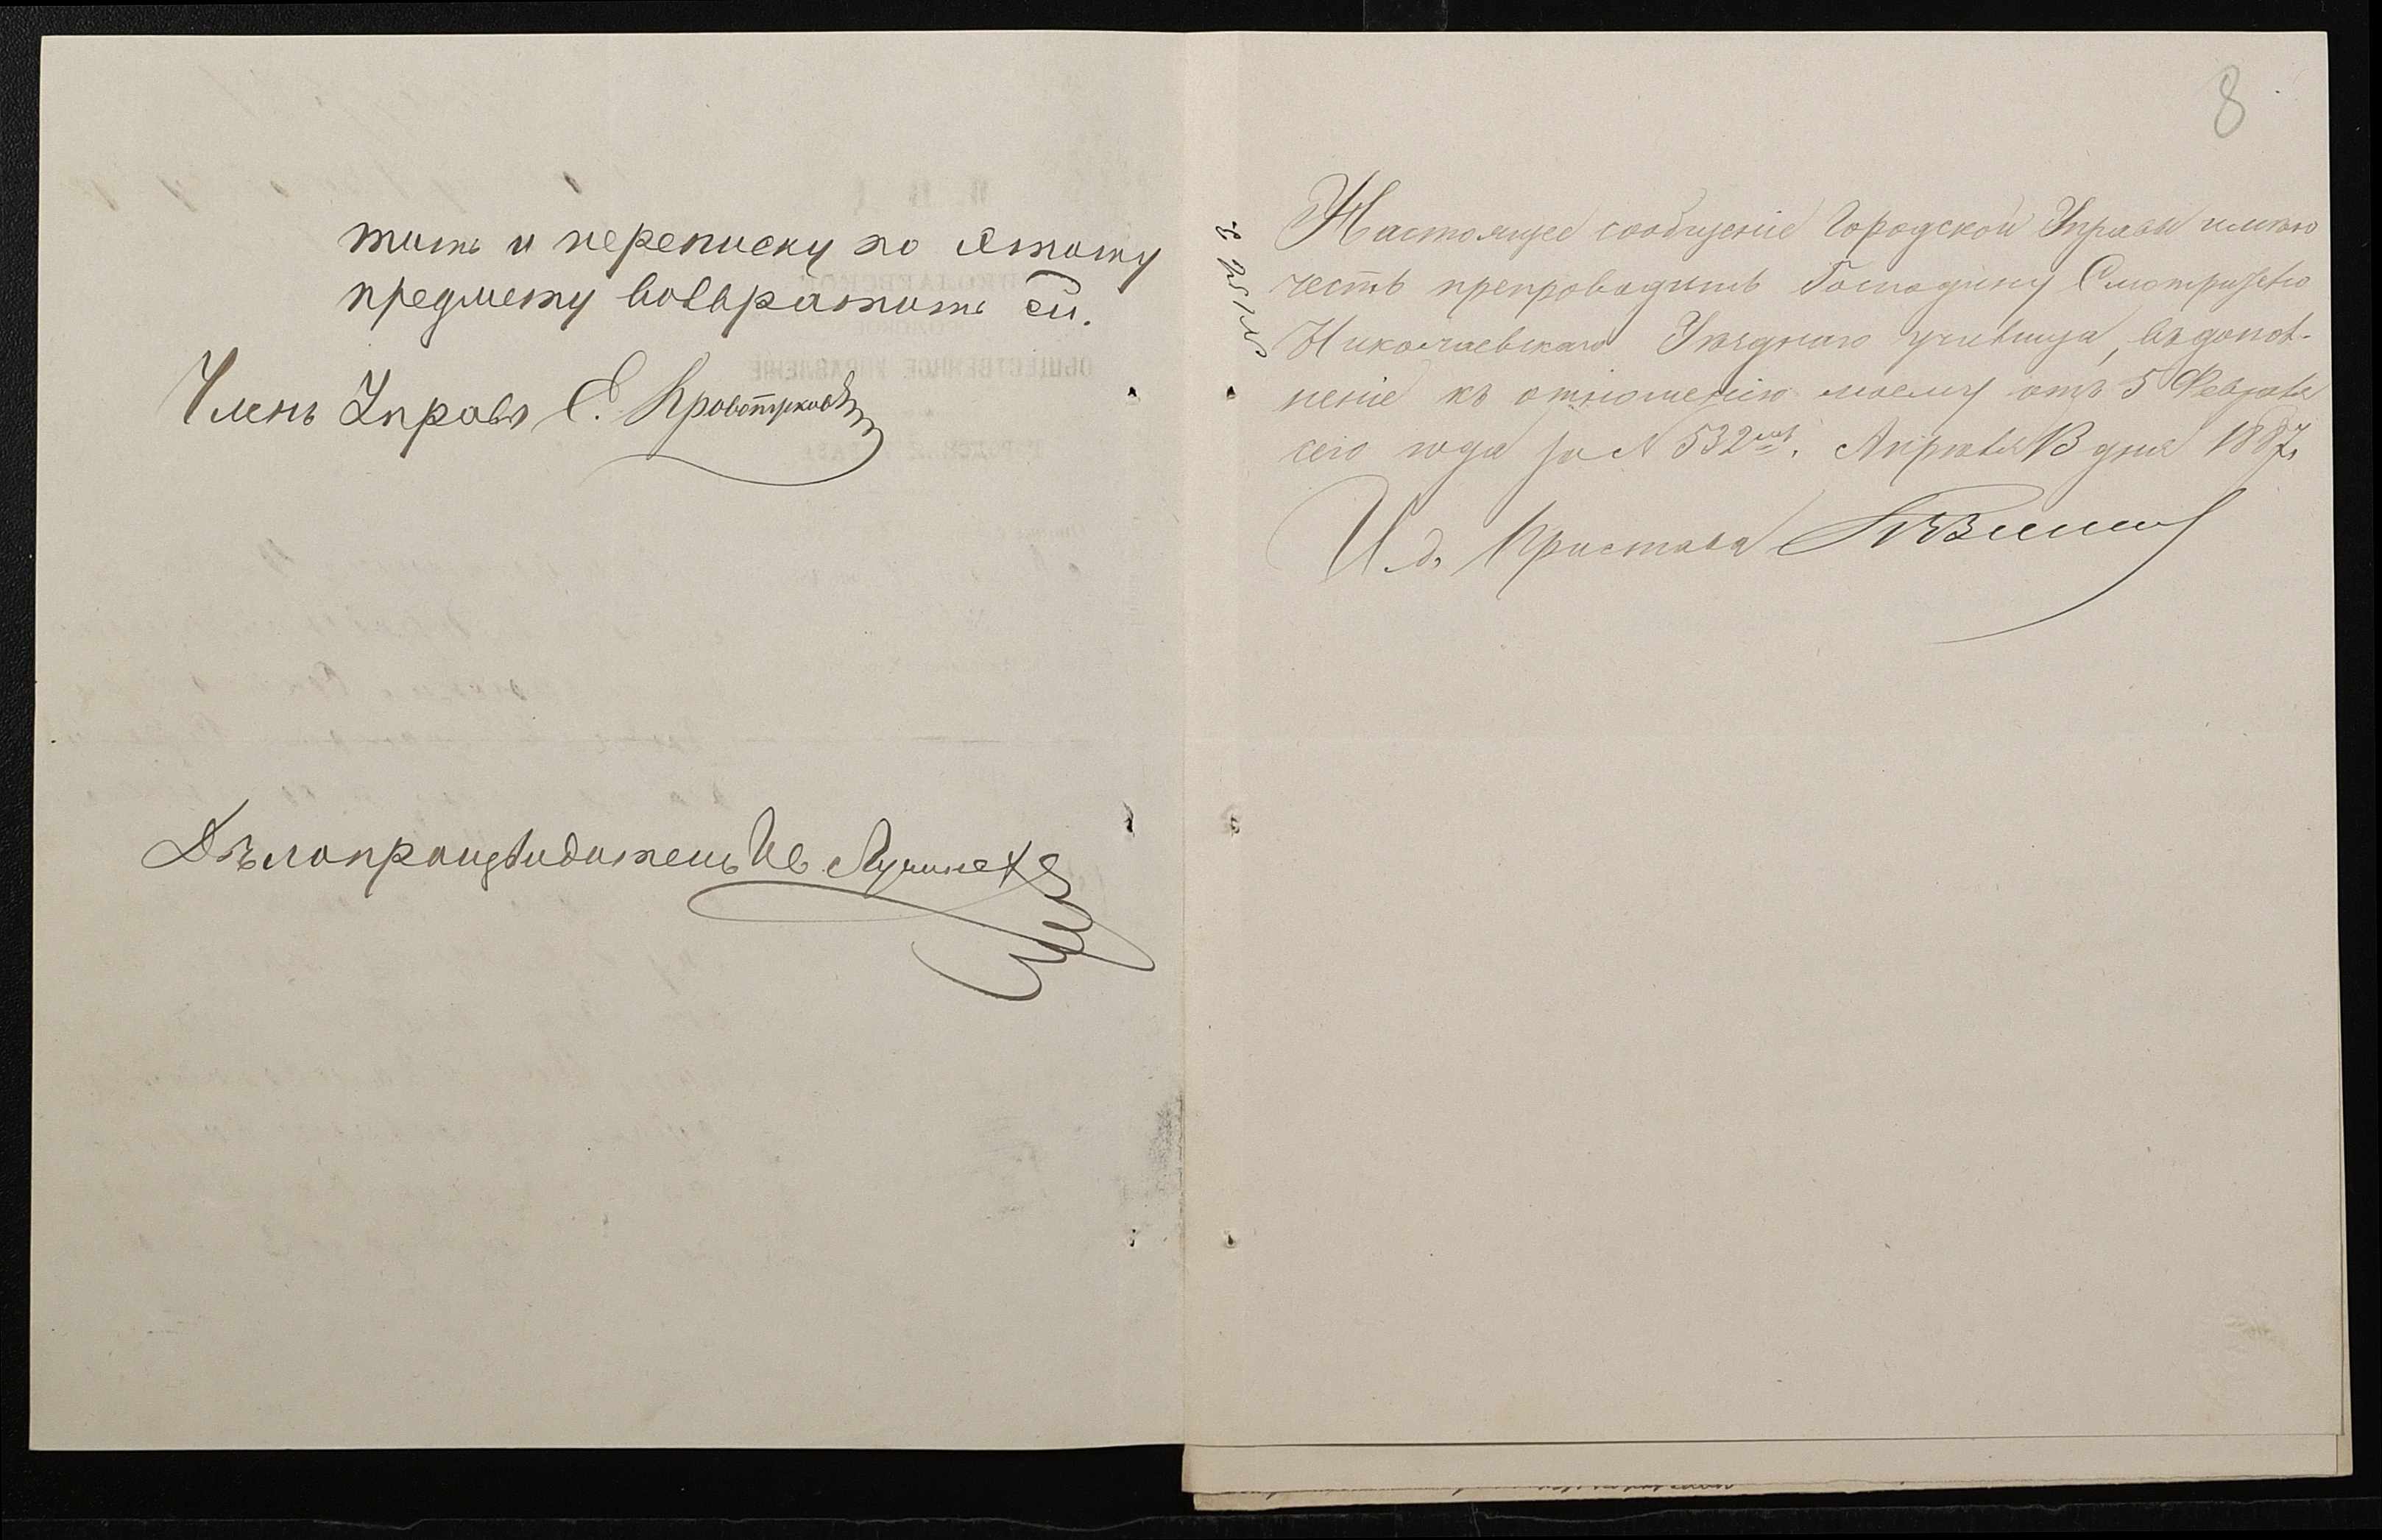 тить и переписку по этому
предмету возвратить ей.
Членъ Управы Е.
Дѣлопроизводитель Ив.
8
Настоящее сообщеніе Городской Управы имѣю
честь препроводить Господину Смотрителю
Николаевскаго Уѣзднаго училища, въ допол-
неніе къ отношенію моему отъ 5 Февраля
сего года за N 532мъ. Апрѣля 13 дня 1887 г.
И. д. Пристава